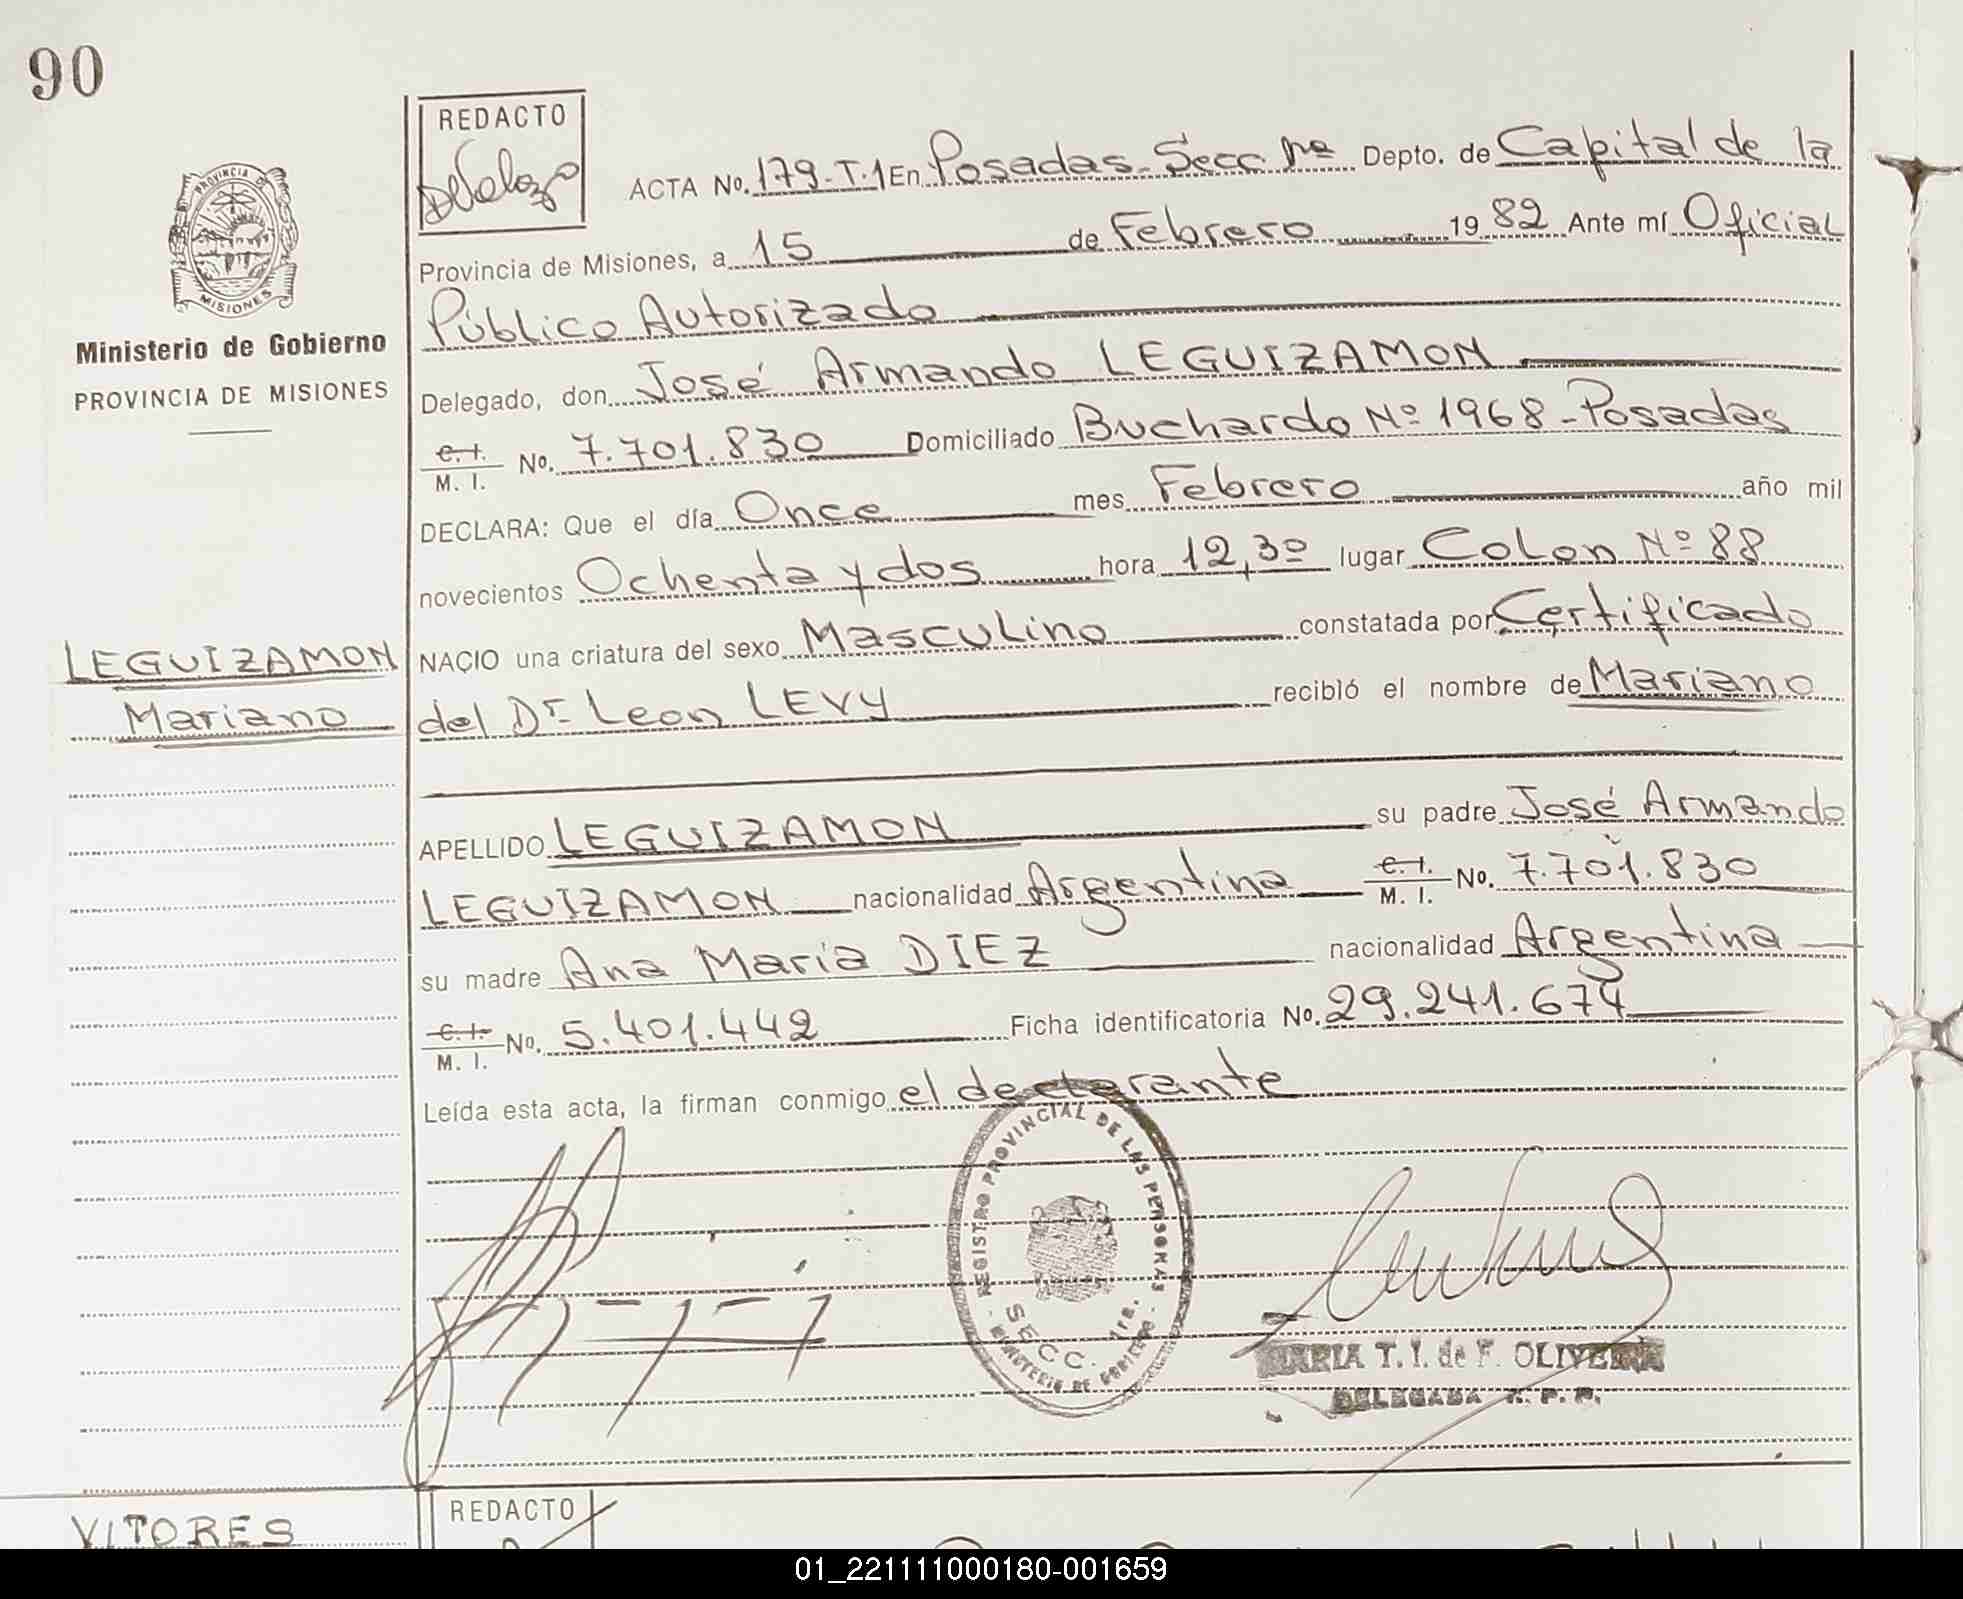 90
PROVINCIA DE
MISIONES
Ministerio de Gobierno
PROVINCIA DE MISIONES
LEGUIZAMON
Mariano
REDACTO
ACTA No. 179-T.1 En Posadas-Secc. 1ra Depto. de Capital de la
Provincia de Misiones, a 15 de Febrero 1982 Ante mí Oficial
Público Autorizado
Delegado, don José Armando LEGUIZAMON
C.I. / M. I. No. 7.701.830 Domiciliado Buchardo Nº 1968-Posadas
DECLARA: Que el día Once mes Febrero año mil
novecientos Ochenta y dos hora 12,30 lugar Colon Nº 88
NACIO una criatura del sexo Masculino constatada por Certificado
del Dr. Leon LEVY recibió el nombre de Mariano
APELLIDO LEGUIZAMON su padre José Armando
LEGUIZAMON nacionalidad Argentina C.I. / M. I. No. 7.701.830
su madre Ana Maria DIEZ nacionalidad Argentina
C.I. / M. I. No. 5.401.442 Ficha identificatoria No. 29.241.674
Leída esta acta, la firman conmigo el declarante
REGISTRO PROVINCIAL DE LAS PERSONAS
SECC. 1ra.
MINISTERIO DE GOBIERNO
MARIA T. I. de F. OLIVEIRA
DELEGADA R. P. P.
VITORES
REDACTO
01_221111000180-001659